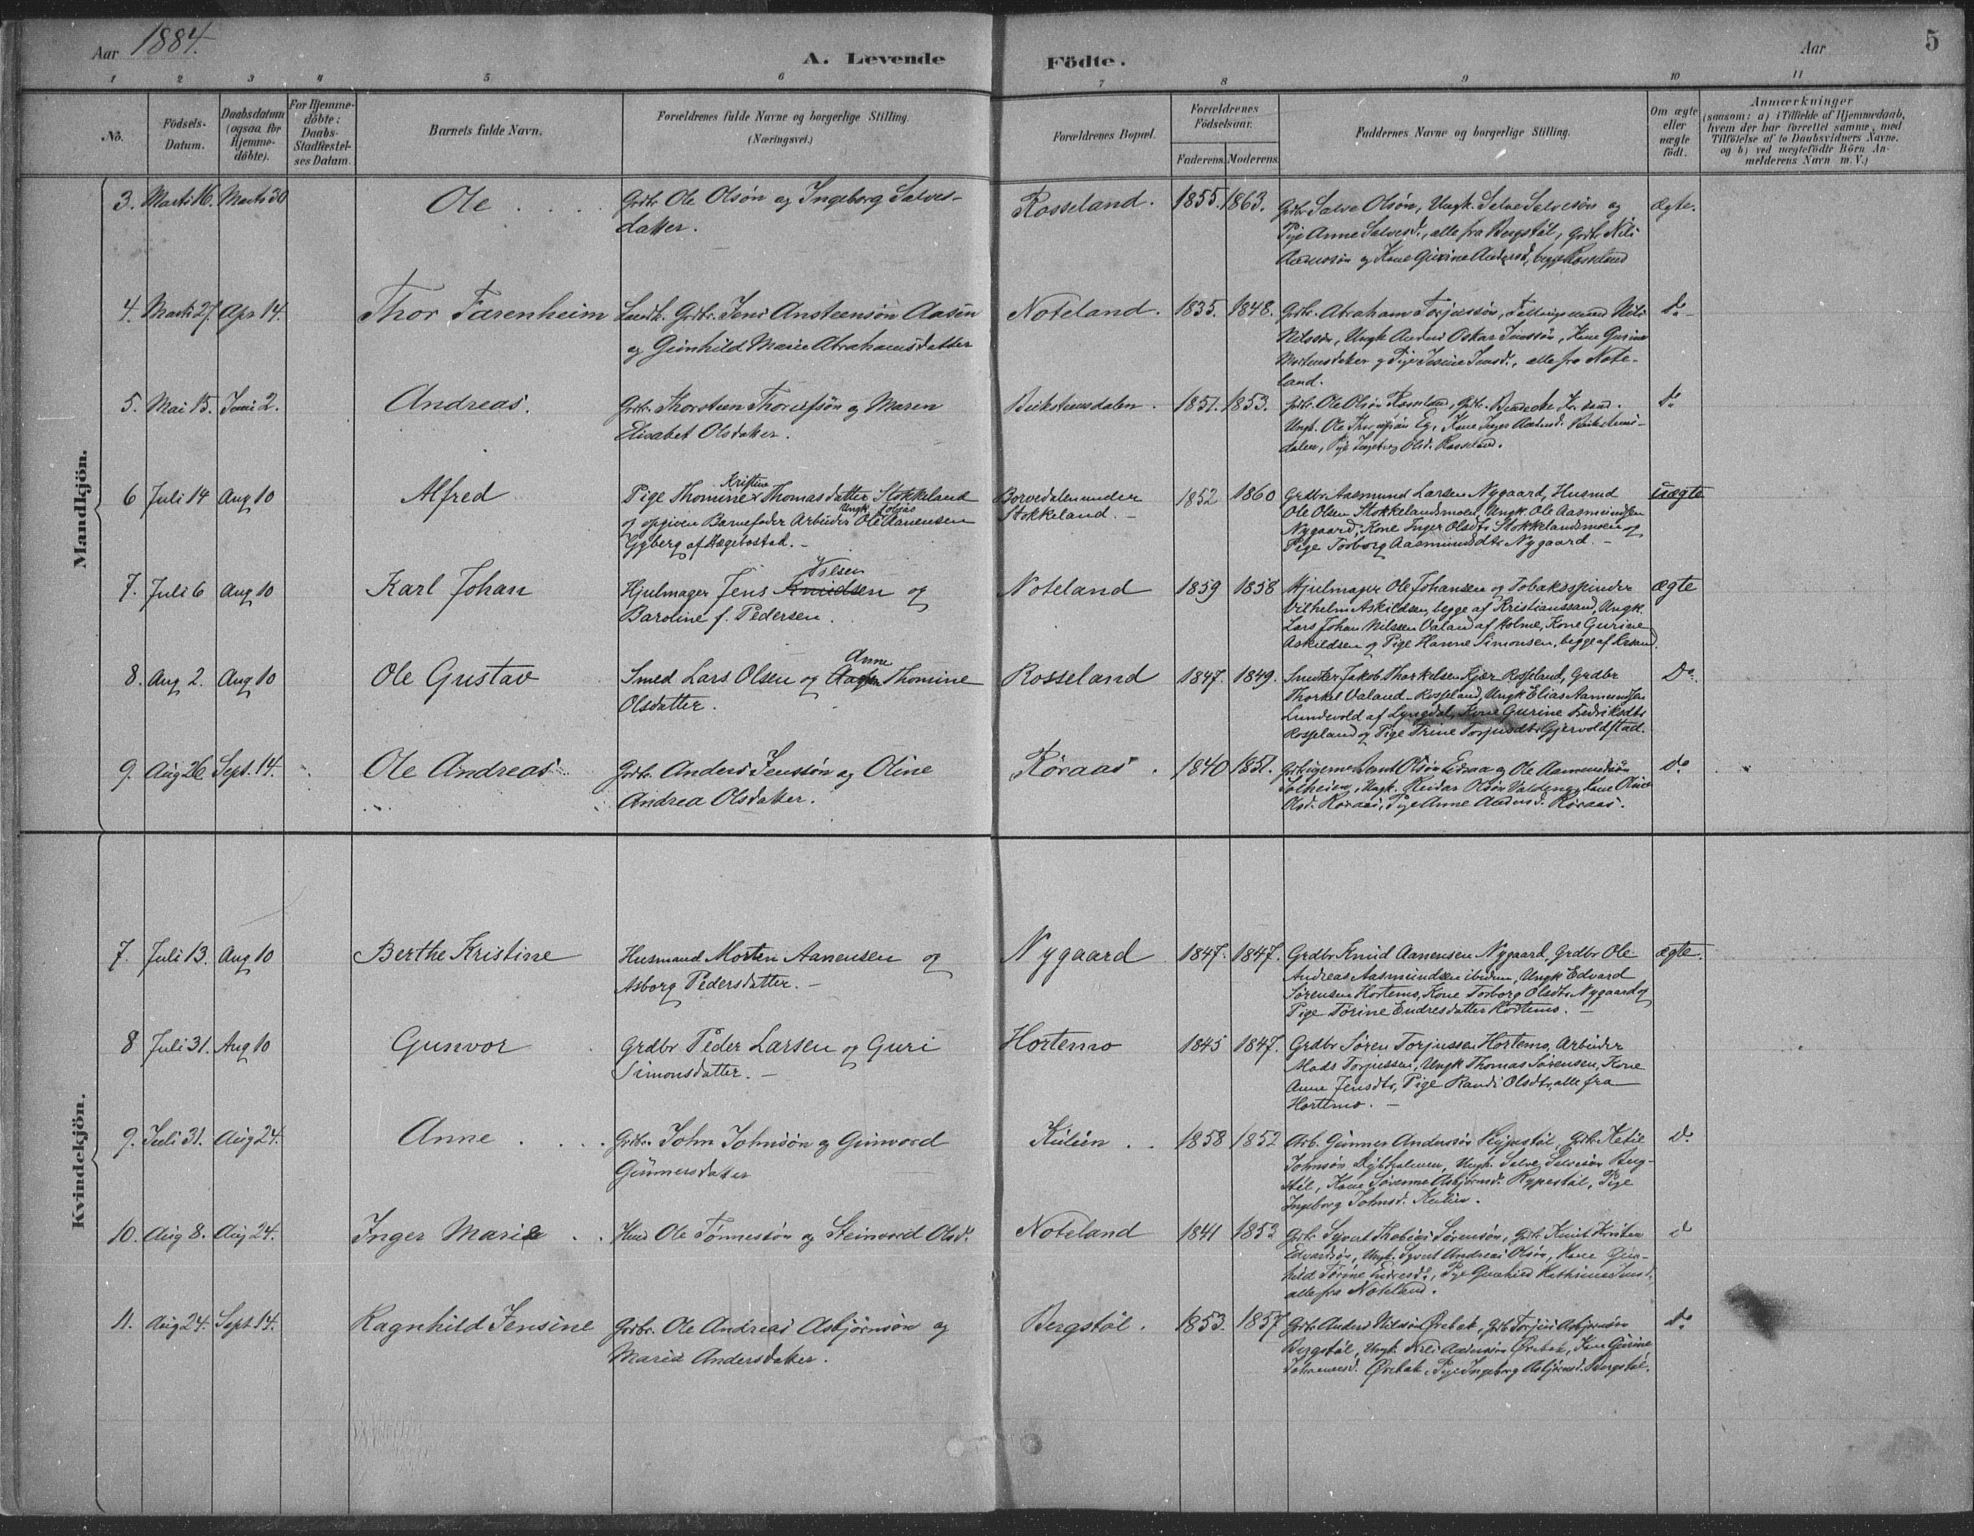 Aar 1884. A. Levende Födte. Aar 5
1 2 3 4 5 6 7 8 9 10 11
No.
Födsels-Datum.
Daabsdatum (ogsaa for Hjemme-döbte).
For Hjemme-döbte: Daabs-Stadfæstel-ses Datum.
Barnets fulde Navn.
Forældrenes fulde Navne og borgerlige Stilling. (Næringsvei.)
Forældrenes Bopæl.
Forældrenes Födselsaar.
Faderens. Moderens.
Faddernes Navne og borgerlige Stilling.
Om ægte eller uægte födt.
Anmærkninger
(saasom: a) i Tilfælde af Hjemmedaab,
hvem der har forrettet samme, med
Tilföielse af to Daabsvidners Navne.
og b) ved uægtefödte Börn An-
melderens Navn m. V.)
Mandkjön.
3. Marts 16. Marts 30 Ole Grdbr. Ole Olsøn og Ingeborg Salves-
datter. Rosseland. 1855. 1863. Grdbr. Salve Olsøn, Ungk. Salve Salvesøn og
Pige Anne Salvesd., alle fra Bergstøl, Grdbr. Nils
Anderssøn og Kone Gurine Andersd., begge Rosseland ægte.
4. Marts 27. Apr 14. Thor Farenheim Landh. Grdbr. Jens Ansteensøn Aasen
og Gunhild Marie Abrahamsdatter Noteland. 1835. 1848. Grdbr. Abraham Torjussøn, Nils
Nilssøn, Ungk. Oskar Jenssøn, Kone Gurine
Mortensdatter og Pige Jensd., alle fra Note-
land. Do
5. Mai 15. Juni 2. Andreas. Grdbr. Thorsteen og Maren
Elisabet Olsdatter. 1851. 1853. Grdbr. Ole Olsøn Rosseland, Grdbr.
Ungk. Ole Eg, Kone Inger
dalen, Pige Ingeborg Olsd. Rosseland. Do
6 Juli 14 Aug 10 Alfred Pige Thomine Kristine Thomasdatter Stokkeland
og opgiven Barnefader Arbeider Ungk. Tobias Ole Aanensen
Gyberg af Hægebostad. Borvedalen under
Stokkeland. 1852 1860 Grdbr Aasmund Larsen Nygaard, Husmd
Ole Olsen Stokkelandsmoen, Ungk. Ole Aasmundsen
Nygaard, Kone Inger Olsdtr Stokkelandsmoen og
Pige Torborg Aasmundsdtr Nygaard. uægte
7. Juli 6 Aug 10 Karl Johan Hjulmager Jens Knudsen Nilsen og
Baroline f. Pedersen. Noteland 1859 1858 Hjulmager Ole Johansen og Tobaksspinder
Vilhelm Askildsen, begge af Kristianssand, Ungk.
Lars Johan Nilssen Valand af Holme, Kone Gurine
Askildsen og Pige Hanne Simonsen, begge af Krsand. ægte
8. Aug 2. Aug 10 Ole Gustav Smed Lars Olsen og Anne Thomine
Olsdatter. Rosseland 1847. 1849. Smed Jakob Thorkelsen Kjær Rosseland, Grdbr
Thorkel Valand Rosseland, Ungk Elias Aamundsen
Lundevold af Lyngdal, Kone Gurine Fredriksdtr
Rosseland og Pige Trine Torjusdtr Gjervoldstad. Do
9. Aug 26 Sept. 14. Ole Andreas Grdbr. Anders Jenssøn og Oline
Andrea Olsdatter. Røraas. 1840 1851. Olsøn og Ole Aamundsøn
Solheim, Ungk. Reidar Olsøn og Kone Oline
Olsd. Røraas, Pige Anne Andersd. Røraas. Do
Kvindekjön.
7. Juli 13. Aug 10 Berthe Kristine Husmand Morten Aanensen og
Asborg Pedersdatter. Nygaard 1847. 1847. Grdbr Knud Aanensen Nygaard, Grdbr Ole
Andreas Aasmundsen ibidem, Ungk Edvard
Sørensen Hortemo, Kone Torborg Olsdtr Nygaard og
Pige Torine Endresdatter Hortemo. ægte
8 Juli 31. Aug 10 Gunvor Grdbr Peder Larsen og Guri
Simonsdatter. Hortemo 1845 1847. Grdbr Søren Torjussen Hortemo, Arbeider
Mads Torjussen, Ungk Thomas Sørensen, Kone
Anne Jensdtr, Pige Randi Olsdtr, alle fra
Hortemo.
9. Juli 31. Aug 24. Anne Grdbr. John Johnsøn og Gunvord
Gunnersdatter Kulien 1858 1852 Arb. Gunner Anderssøn Rypestøl, Grdbr. Ketil
Johnsøn, Ungk. Salve Salvesøn Berg-
støl, Kone Asbjørnsd. Rypestøl, Pige
Ingeborg Johnsd. Kulien. Do
10. Aug 8. Aug 24. Inger Marie Husm Ole Tønnessøn og Steinvord Olsd. Noteland 1841 1853 Grdbr. Syvert Thobias Sørensøn, Grdbr. Knut Kristen
Edvardsøn, Ungk. Syvert Andreas Olsøn, Kone Gun-
hild Torine Endresd., Pige Gunhild Kathrine Jensd.
alle fra Noteland. d
11. Aug 24. Sept 14. Ragnhild Jensine Grdbr. Ole Andreas Asbjørnsøn og
Maria Andersdatter. Bergstøl. 1853. 1857 Grdbr. Anders Nilsøn Ørebæk, Grdbr Torjus Asbjørnsøn
Bergstøl, Ungk. Nils Anderssøn Ørebæk, Kone Gurine
Ørebæk, Pige Ingeborg Asbjørnsd. Bergstøl. Do